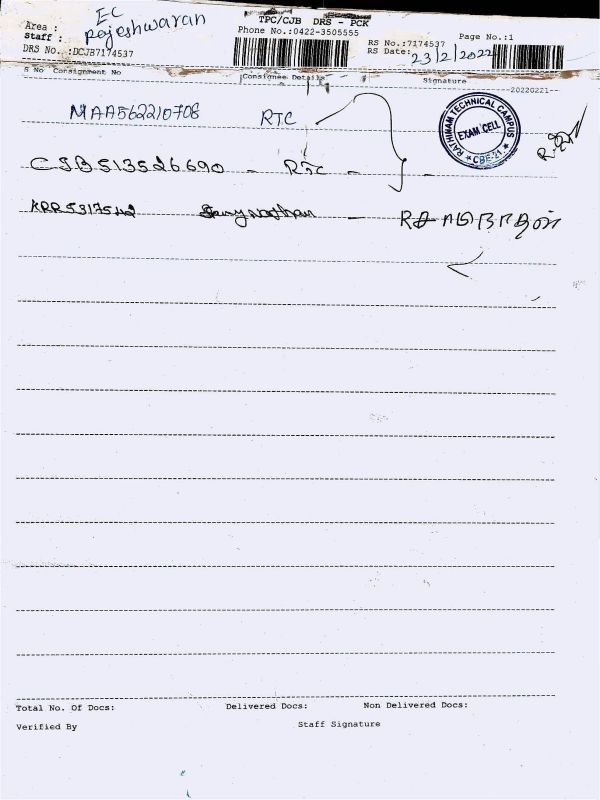 TPC/CJB DRS - PCK
Area : EC
Staff : Rajeshwaran
Phone No.:0422-3505555
Page No.:1
RS No.:7174537
DRS No. :DCJB7174537
RS Date: 23/2/2022
S No Consignment No Consignee Details Signature
20220221
MAA562210708 RTC
RATHINAM TECHNICAL CAMPUS
EXAM CELL
* CBE-21 *
CJB513526690 - RTC -
KRR5317542 -
Total No. Of Docs: Delivered Docs: Non Delivered Docs:
Verified By Staff Signature